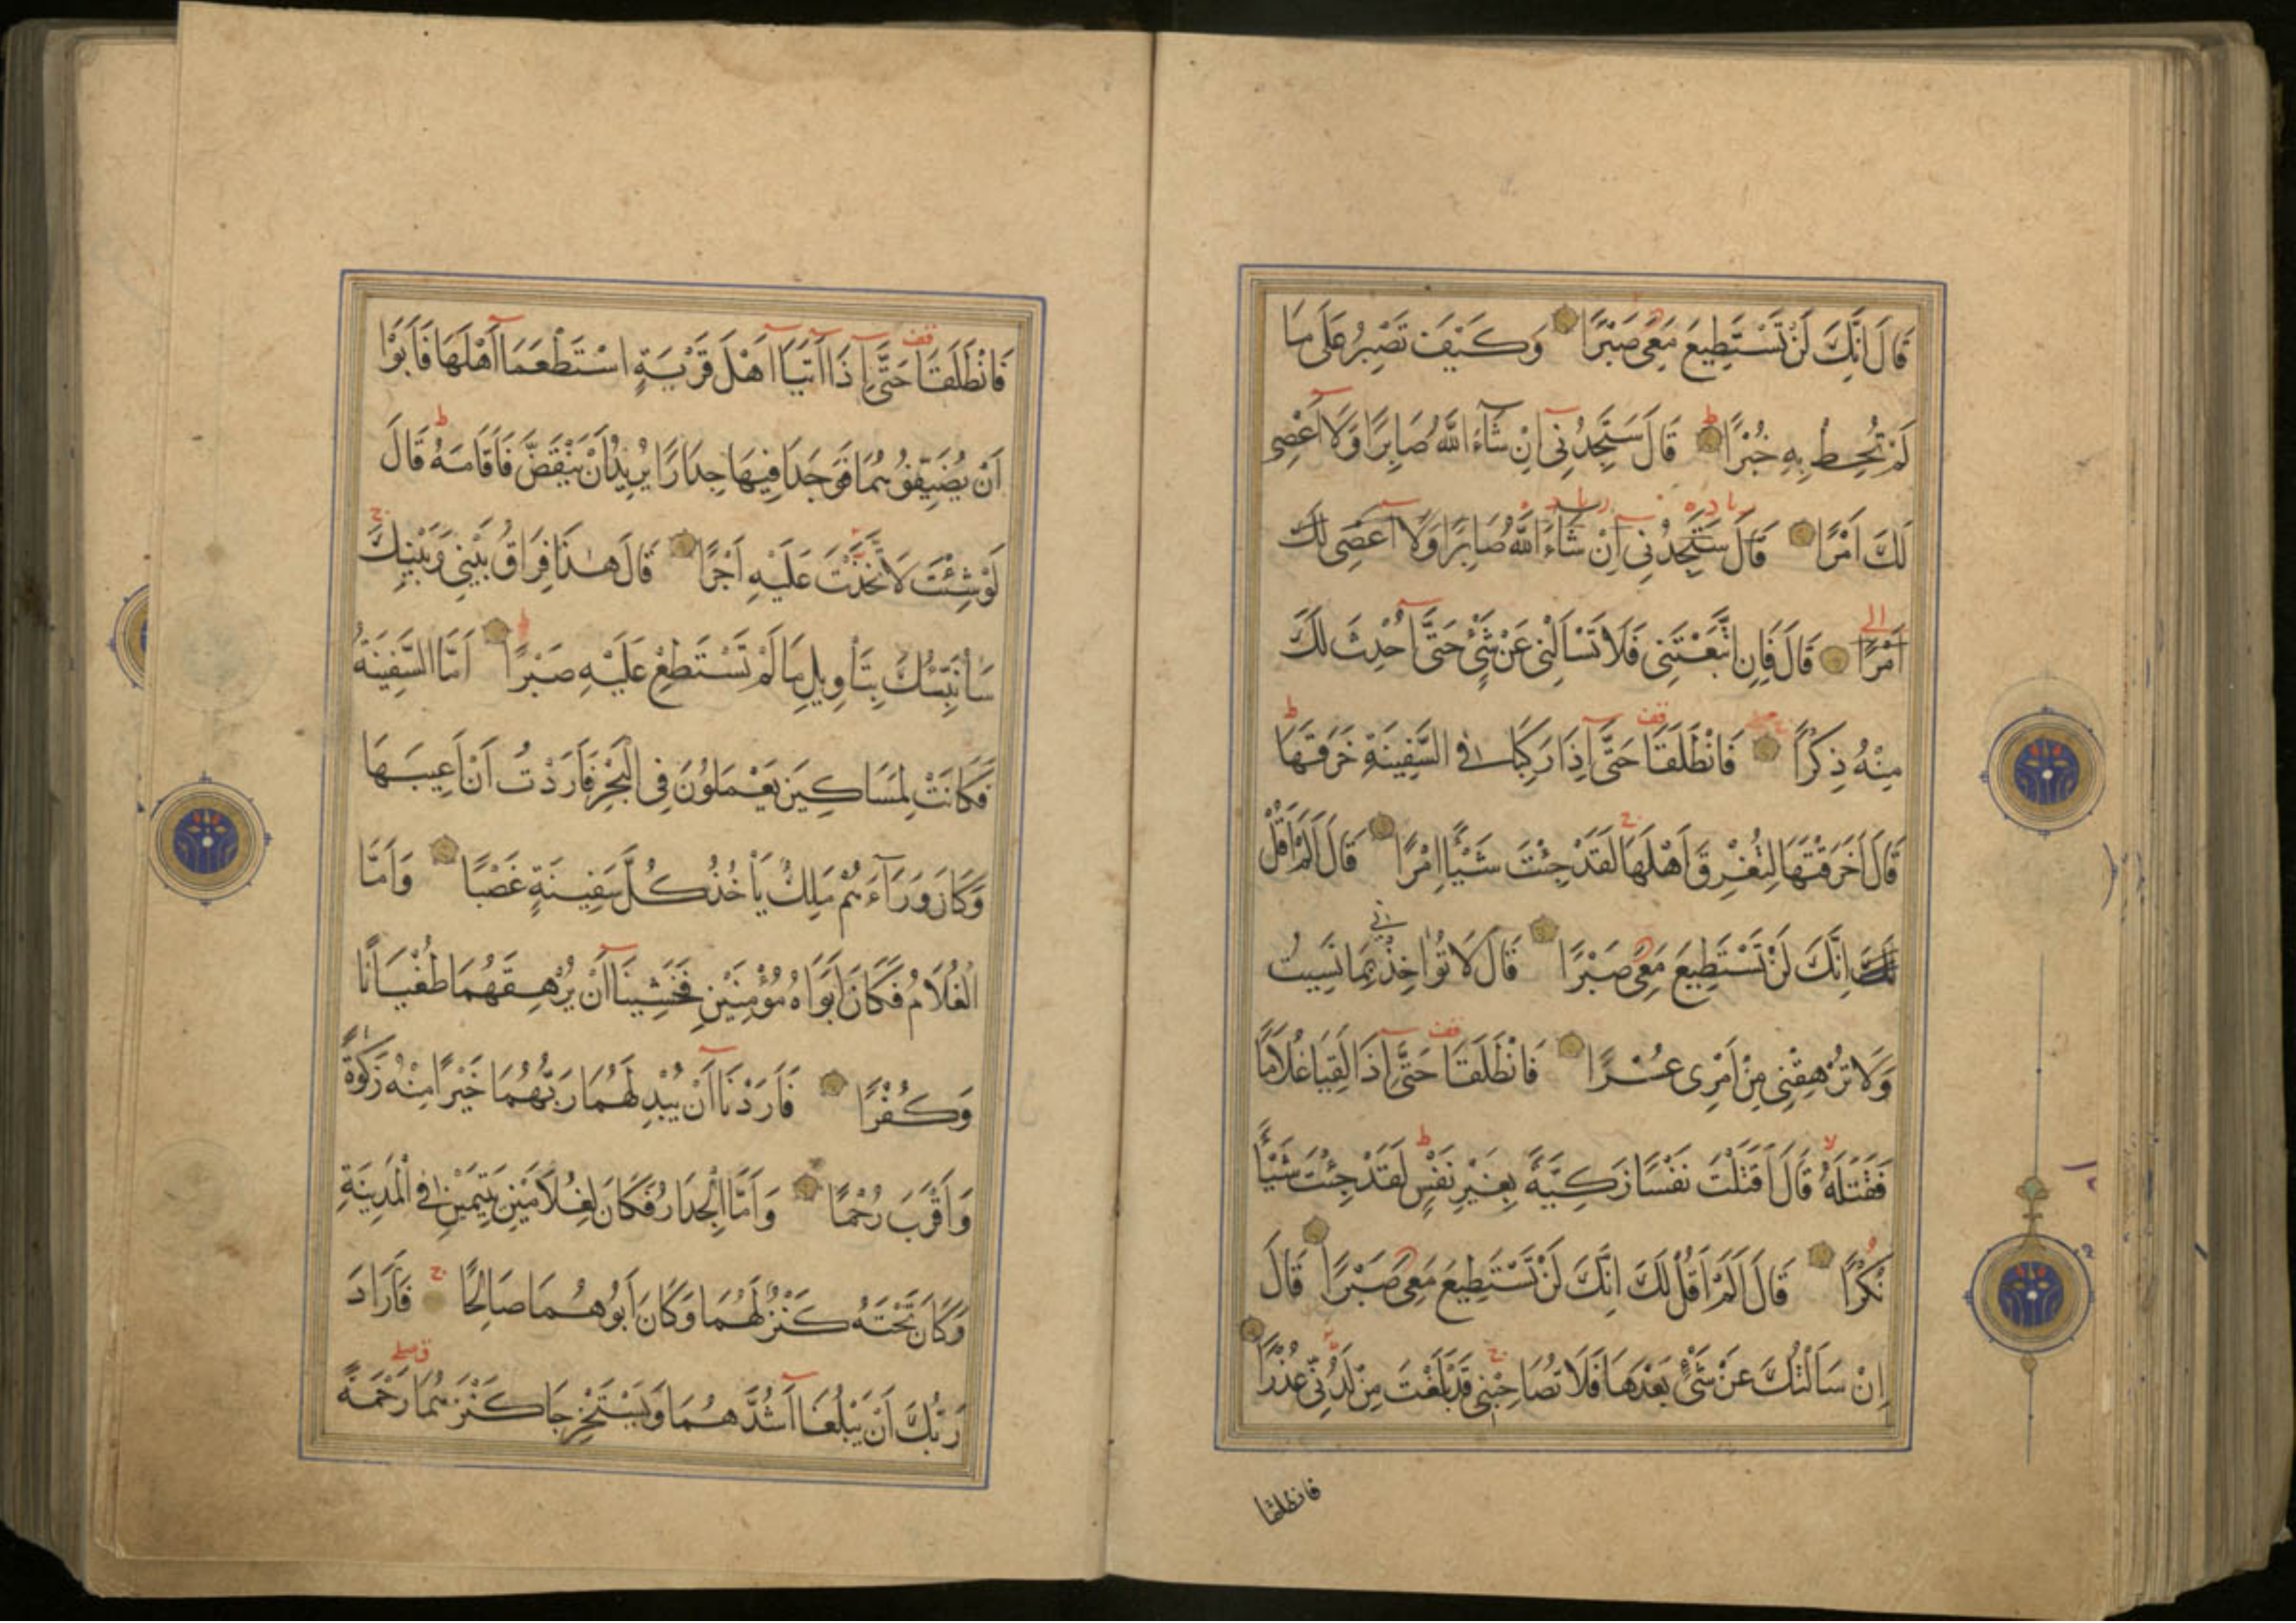 قَالَ اِنَّكَ لَنْ تَسْتَطِيعَ مَعِيَ صَبْرًا وَكَيْفَ تَصْبِرُ عَلٰى مَا
لَمْ تُحِطْ بِهِ خُبْرًا قَالَ سَتَجِدُنِى اِنْ شَآءَ اللّٰهُ صَابِرًا وَلَا اَعْصِى
لَكَ اَمْرًا قَالَ سَتَجِدُنِى اِنْ شَآءَ اللّٰهُ صَابِرًا وَلَا اَعْصِى لَكَ
اَمْرًا قَالَ فَاِنِ اتَّبَعْتَنِى فَلَا تَسْاَلْنِى عَنْ شَىْءٍ حَتّٰى اُحْدِثَ لَكَ
مِنْهُ ذِكْرًا فَانْطَلَقَا حَتّٰى اِذَا رَكِبَا فِى السَّفِينَةِ خَرَقَهَا
قَالَ اَخَرَقْتَهَا لِتُغْرِقَ اَهْلَهَا لَقَدْ جِئْتَ شَيْئًا اِمْرًا قَالَ اَلَمْ اَقُلْ
اِنَّكَ لَنْ تَسْتَطِيعَ مَعِيَ صَبْرًا قَالَ لَا تُؤَاخِذْنِى بِمَا نَسِيتُ
وَلَا تُرْهِقْنِى مِنْ اَمْرِى عُسْرًا فَانْطَلَقَا حَتّٰى اِذَا لَقِيَا غُلَامًا
فَقَتَلَهُ قَالَ اَقَتَلْتَ نَفْسًا زَكِيَّةً بِغَيْرِ نَفْسٍ لَقَدْ جِئْتَ شَيْئًا
نُكْرًا قَالَ اَلَمْ اَقُلْ لَكَ اِنَّكَ لَنْ تَسْتَطِيعَ مَعِيَ صَبْرًا قَالَ
اِنْ سَاَلْتُكَ عَنْ شَىْءٍ بَعْدَهَا فَلَا تُصَاحِبْنِى قَدْ بَلَغْتَ مِنْ لَدُنِّى عُذْرًا
فانطلقا
فَانْطَلَقَا حَتّٰى اِذَا اَتَيَا اَهْلَ قَرْيَةٍ اسْتَطْعَمَا اَهْلَهَا فَاَبَوْا
اَنْ يُضَيِّفُوهُمَا فَوَجَدَا فِيهَا جِدَارًا يُرِيدُ اَنْ يَنْقَضَّ فَاَقَامَهُ قَالَ
لَوْ شِئْتَ لَاتَّخَذْتَ عَلَيْهِ اَجْرًا قَالَ هٰذَا فِرَاقُ بَيْنِى وَبَيْنِكَ
سَاُنَبِّئُكَ بِتَاْوِيلِ مَا لَمْ تَسْتَطِعْ عَلَيْهِ صَبْرًا اَمَّا السَّفِينَةُ
فَكَانَتْ لِمَسَاكِينَ يَعْمَلُونَ فِى الْبَحْرِ فَاَرَدْتُ اَنْ اَعِيبَهَا
وَكَانَ وَرَآءَهُمْ مَلِكٌ يَاْخُذُ كُلَّ سَفِينَةٍ غَصْبًا وَاَمَّا
الْغُلَامُ فَكَانَ اَبَوَاهُ مُؤْمِنَيْنِ فَخَشِينَا اَنْ يُرْهِقَهُمَا طُغْيَانًا
وَكُفْرًا فَاَرَدْنَا اَنْ يُبْدِلَهُمَا رَبُّهُمَا خَيْرًا مِنْهُ زَكٰوةً
وَاَقْرَبَ رُحْمًا وَاَمَّا الْجِدَارُ فَكَانَ لِغُلَامَيْنِ يَتِيمَيْنِ فِى الْمَدِينَةِ
وَكَانَ تَحْتَهُ كَنْزٌ لَهُمَا وَكَانَ اَبُوهُمَا صَالِحًا فَاَرَادَ
رَبُّكَ اَنْ يَبْلُغَا اَشُدَّهُمَا وَيَسْتَخْرِجَا كَنْزَهُمَا رَحْمَةً